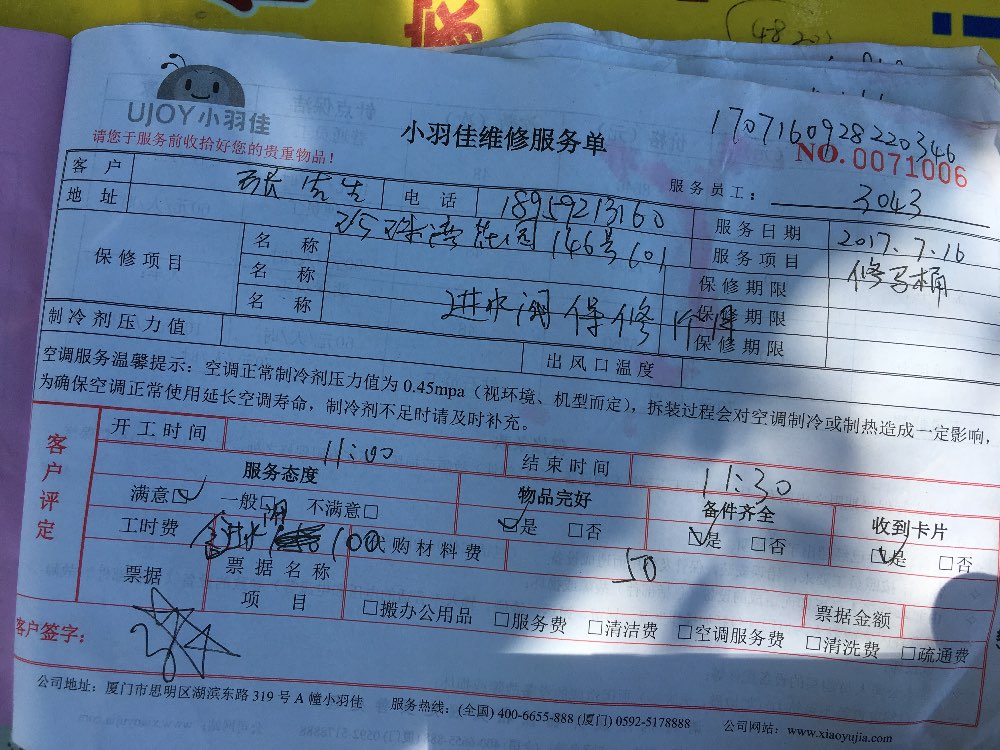 UJOY小羽佳
请您于服务前收拾好您的贵重物品！
小羽佳维修服务单
1707160928220346
NO. 0071006
服务员工： 3043
客户 张先生 电话 18959213160
地址 146号601 服务日期 2017.7.16
保修项目 名称 服务项目 修马桶
名称 保修期限
名称 进水阀保修 保修期限
保修期限
制冷剂压力值 出风口温度
空调服务温馨提示：空调正常制冷剂压力值为 0.45mpa（视环境、机型而定），拆装过程会对空调制冷或制热造成一定影响，
为确保空调正常使用延长空调寿命，制冷剂不足时请及时补充。
客户评定
开工时间 11:00 结束时间 11:30
服务态度 物品完好 备件齐全 收到卡片
满意☑ 一般□ 不满意□ ☑是 □否 ☑是 □否 ☑是 □否
工时费 100 代购材料费 50
票据 票据名称 票据金额
项目 □搬办公用品 □服务费 □清洁费 □空调服务费 □清洗费 □疏通费
客户签字：
公司地址：厦门市思明区湖滨东路 319 号 A 幢小羽佳 服务热线：(全国) 400-6655-888 (厦门) 0592-5178888 公司网站：www.xiaoyujia.com